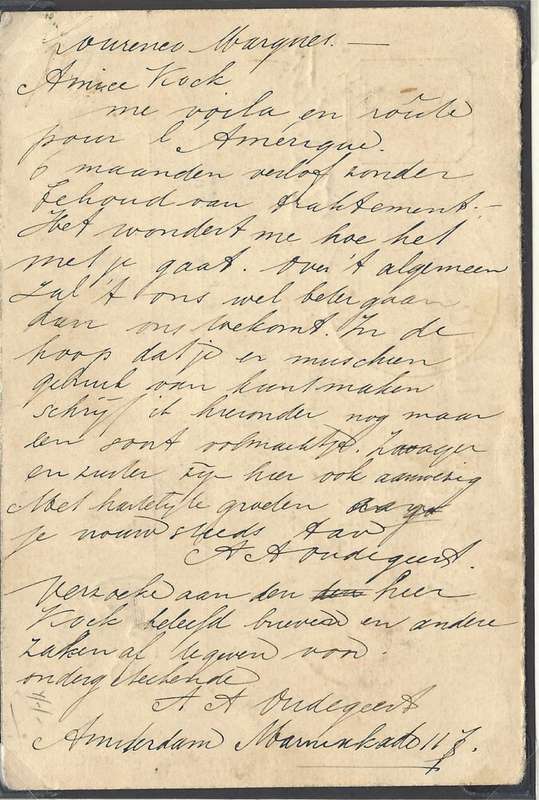 Lourenco Marques. —
Amice Kock
me voila en route
pour l'Amerique.
6 maanden verlof zonder
behoud van traktement. —
Het wondert me hoe het
met je gaat. Over 't algemeen
zal 't ons wel beter gaan
dan ons toekomt. In de
hoop dat je er misschien
gebruik van kunt maken
schrijf ik hieronder nog maar
een soort volmachtje. Zwager
en zuster zijn hier ook aanwezig
Met hartelijke groeten
je vrouw steeds tav
A A Oudegeest.
Verzoeke aan den heer
Kock beleefd brieven en andere
zaken af te geven voor
ondergeteekende
A A Oudegeest
Amsterdam Marnixkade 11